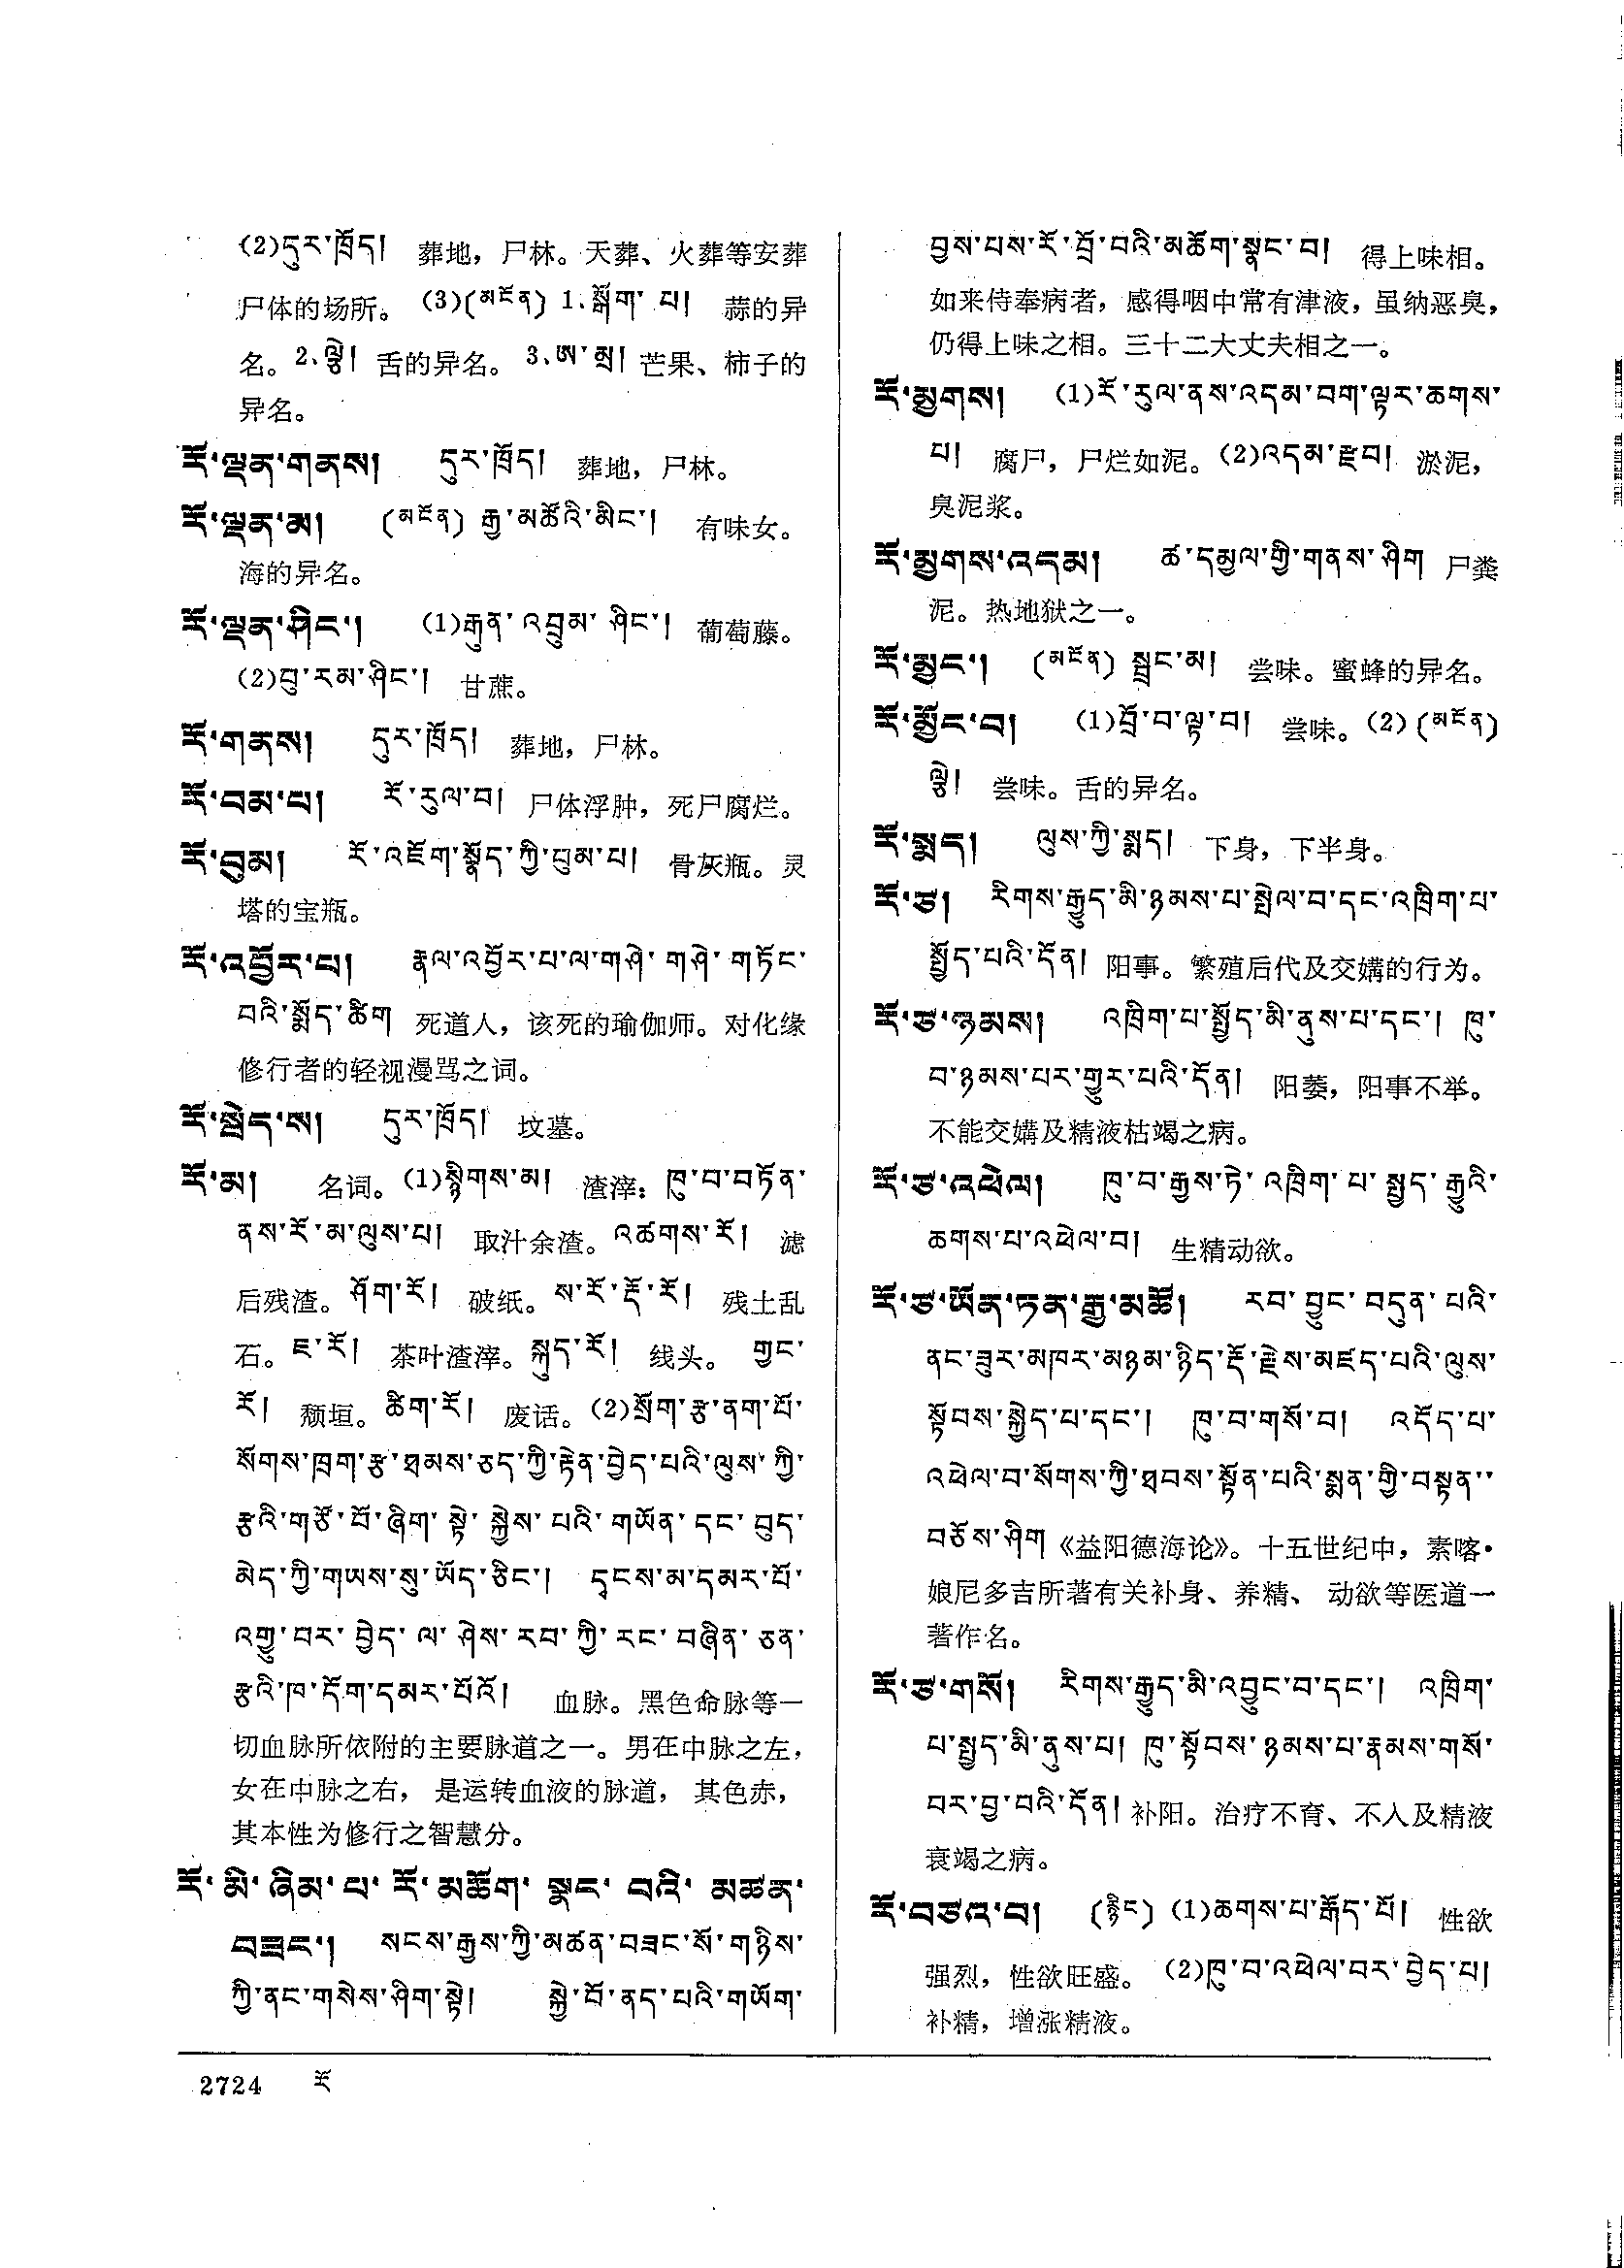 (2)དུར་ཁྲོད། 葬地，尸林。天葬、火葬等安葬
尸体的场所。(3)(མངོན) 1.སྒོག་པ། 蒜的异
名。2.ལྕེ། 舌的异名。3.ཨ་མྲ། 芒果、柿子的
异名。
རོ་ལྡན་གནས། དུར་ཁྲོད། 葬地，尸林。
རོ་ལྡན་མ། (མངོན) རྒྱ་མཚོའི་མིང་། 有味女。
海的异名。
རོ་ལྡན་ཤིང་། (1)རྒུན་འབྲུམ་ཤིང་། 葡萄藤。
(2)བུ་རམ་ཤིང་། 甘蔗。
རོ་གནས། དུར་ཁྲོད། 葬地，尸林。
རོ་བམ་པ། རོ་རུལ་བ། 尸体浮肿，死尸腐烂。
རོ་བུམ། རོ་འཇོག་སྣོད་ཀྱི་བུམ་པ། 骨灰瓶。灵
塔的宝瓶。
རོ་འབྱོར་པ། རྣལ་འབྱོར་པ་ལ་གཤེ་གཤེ་གཏོང་
བའི་སྨོད་ཚིག 死道人，该死的瑜伽师。对化缘
修行者的轻视漫骂之词。
རོ་སྦེད་ས། དུར་ཁྲོད། 坟墓。
རོ་མ། 名词。(1)སྙིགས་མ། 渣滓：ཁུ་བ་བཏོན་
ནས་རོ་མ་ལུས་པ། 取汁余渣。འཚགས་རོ། 滤
后残渣。ཤོག་རོ། 破纸。ས་རོ་རྡོ་རོ། 残土乱
石。ཇ་རོ། 茶叶渣滓。སྐུད་རོ། 线头。 གྱང་
རོ། 颓垣。ཚིག་རོ། 废话。(2)སྲོག་རྩ་ནག་པོ་
སོགས་ཁྲག་རྩ་ཐམས་ཅད་ཀྱི་རྟེན་བྱེད་པའི་ལུས་ཀྱི་
རྩའི་གཙོ་བོ་ཞིག་སྟེ་སྐྱེས་པའི་གཡོན་དང་བུད་
མེད་ཀྱི་གཡས་སུ་ཡོད་ཅིང་། དྭངས་མ་དམར་པོ་
འགྱུ་བར་བྱེད་ལ་ཤེས་རབ་ཀྱི་རང་བཞིན་ཅན་
རྩའི་ཁ་དོག་དམར་པོའོ། 血脉。黑色命脉等一
切血脉所依附的主要脉道之一。男在中脉之左，
女在中脉之右，是运转血液的脉道，其色赤，
其本性为修行之智慧分。
རོ་མི་ཞིམ་པ་རོ་མཆོག་སྣང་བའི་མཚན་
བཟང་། སངས་རྒྱས་ཀྱི་མཚན་བཟང་སོ་གཉིས་
ཀྱི་ནང་གསེས་ཤིག་སྟེ། སྐྱེ་བོ་ནད་པའི་གཡོག་
བྱས་པས་རོ་བྲོ་བའི་མཆོག་སྣང་བ། 得上味相。
如来侍奉病者，感得咽中常有津液，虽纳恶臭，
仍得上味之相。三十二大丈夫相之一。
རོ་མྱགས། (1)རོ་རུལ་ནས་འདམ་བག་ལྟར་ཆགས་
པ། 腐尸，尸烂如泥。(2)འདམ་རྫབ། 淤泥，
臭泥浆。
རོ་མྱགས་འདམ། ཚ་དམྱལ་གྱི་གནས་ཤིག 尸粪
泥。热地狱之一。
རོ་མྱང་། (མངོན) སྦྲང་མ། 尝味。蜜蜂的异名。
རོ་མྱོང་བ། (1)བྲོ་བ་ལྟ་བ། 尝味。(2)(མངོན)
ལྕེ། 尝味。舌的异名。
རོ་སྨད། ལུས་ཀྱི་སྨད། 下身，下半身。
རོ་ཙ། རིགས་རྒྱུད་མི་ཉམས་པ་སྤེལ་བ་དང་འཁྲིག་པ་
སྤྱོད་པའི་དོན། 阳事。繁殖后代及交媾的行为。
རོ་ཙ་ཉམས། འཁྲིག་པ་སྤྱོད་མི་ནུས་པ་དང་། ཁུ་
བ་ཉམས་པར་གྱུར་པའི་དོན། 阳萎，阳事不举。
不能交媾及精液枯竭之病。
རོ་ཙ་འཕེལ། ཁུ་བ་རྒྱས་ཏེ་འཁྲིག་པ་སྤྱད་རྒྱུའི་
ཆགས་པ་འཕེལ་བ། 生精动欲。
རོ་ཙ་ཡོན་ཏན་རྒྱ་མཚོ། རབ་བྱུང་བདུན་པའི་
ནང་ཟུར་མཁར་མཉམ་ཉིད་རྡོ་རྗེས་མཛད་པའི་ལུས་
སྟོབས་སྐྱེད་པ་དང་། ཁུ་བ་གསོ་བ། འདོད་པ་
འཕེལ་བ་སོགས་ཀྱི་ཐབས་སྟོན་པའི་སྨན་གྱི་བསྟན་་
བཅོས་ཤིག《益阳德海论》。十五世纪中，素喀·
娘尼多吉所著有关补身、养精、动欲等医道一
著作名。
རོ་ཙ་གསོ། རིགས་རྒྱུད་མི་འབྱུང་བ་དང་། འཁྲིག་
པ་སྤྱད་མི་ནུས་པ། ཁུ་སྟོབས་ཉམས་པ་རྣམས་གསོ་
བར་བྱ་བའི་དོན། 补阳。治疗不育、不人及精液
衰竭之病。
རོ་བཙའ་བ། (རྙིང) (1)ཆགས་པ་རྒོད་པོ། 性欲
强烈，性欲旺盛。(2)ཁུ་བ་འཕེལ་བར་བྱེད་པ།
补精，增涨精液。
2724 རོ